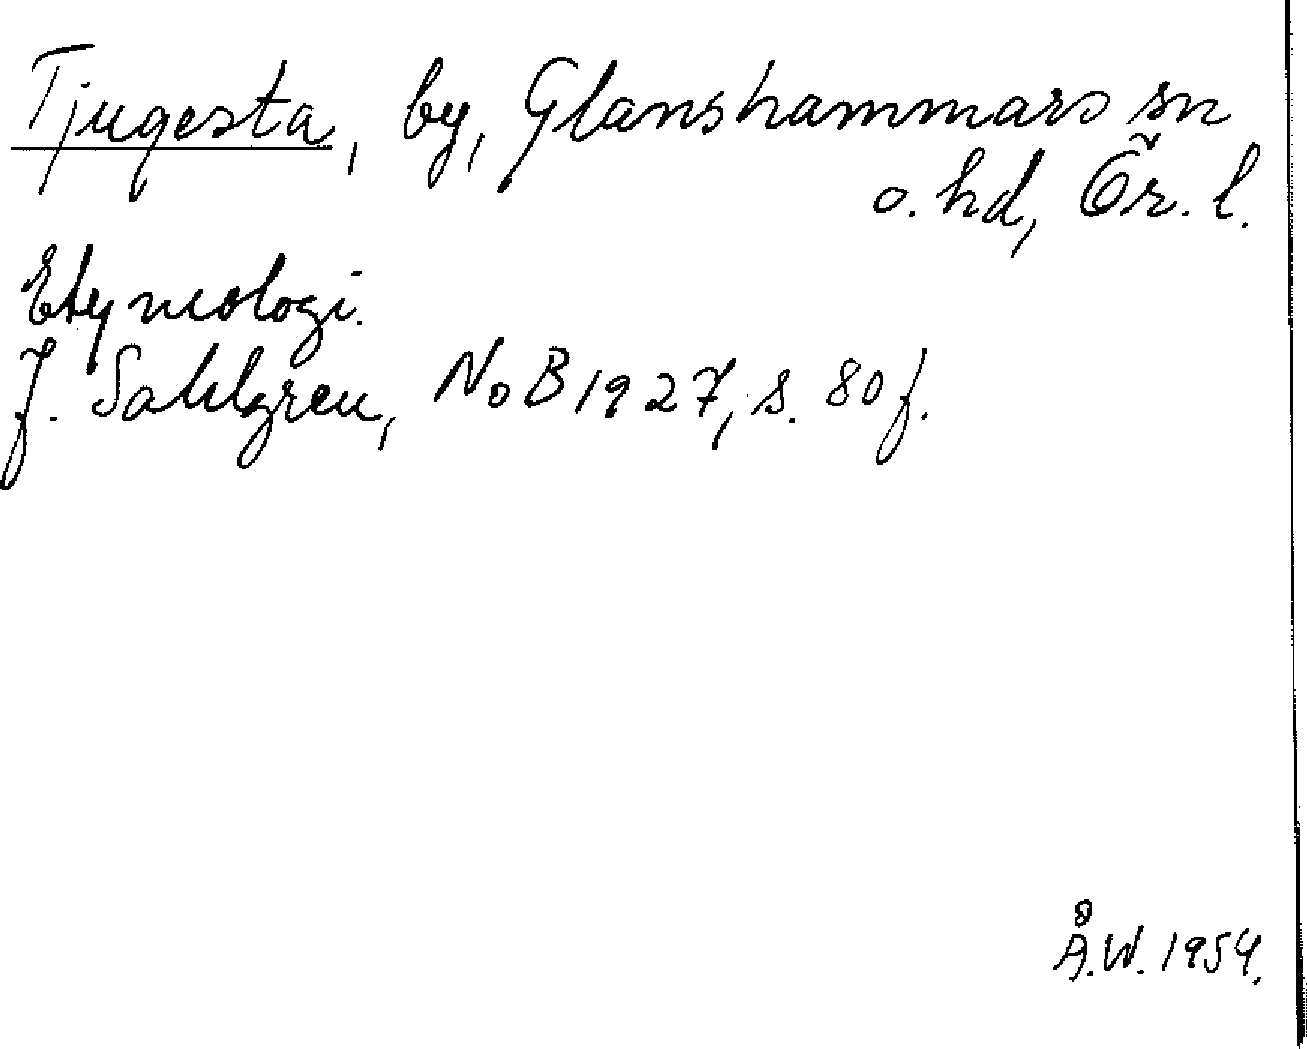 Tjugesta, by, Glanshammars sn
o. hd, Ör. l.
Etymologi.
J. Sahlgren, NoB 1927, s. 80 f.
Å.W. 1954.